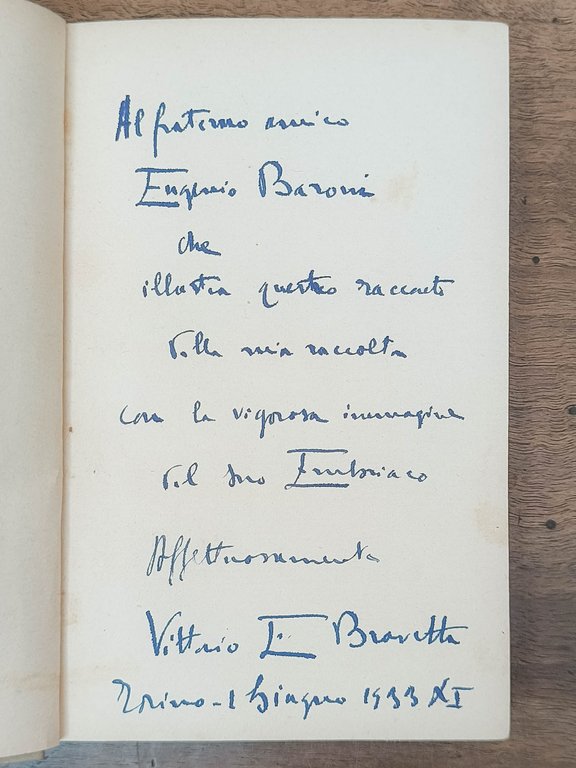 Al fraterno amico
Eugenio Baroni
che
illustra questo racconto
della mia raccolta
con la vigorosa immagine
del suo Embriaco
Affettuosamente
Vittorio E. Bravetta
Torino - 1 Giugno 1933 XI